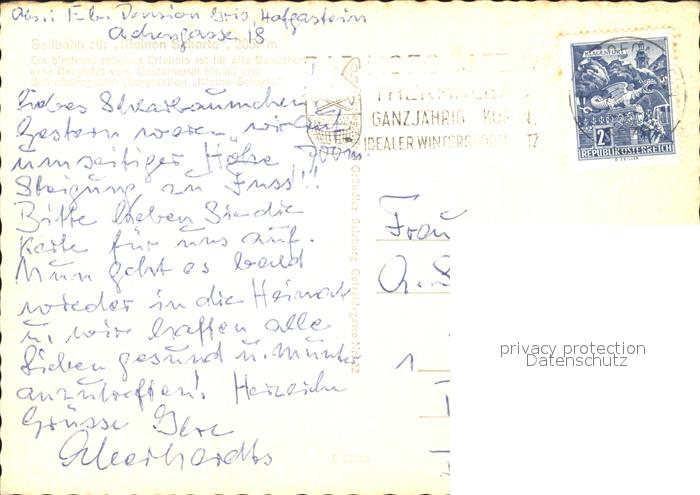 Abs.: Eb. Pension Gris, Hofgastein
Achengasse 18
Seilbahn zur „Kleinen Scharte", 2050 m
Ein bleibend schönes Erlebnis ist für alle Besucher
eine Bergfahrt vom Gasteinertal hinauf zum
Schloßalmgebiet (Bergstation „Kleine Scharte")
Liebes
Gestern waren wir auf
umseitiger Höhe 700 m
Steigung zu Fuss!!
Bitte heben Sie die
Karte für uns auf.
Nun geht es bald
wieder in die Heimat
u. wir hoffen alle
Lieben gesund u. munter
anzutreffen! Herzliche
Grüsse Ihre
Eberhardts
THERMALBAD
GANZJÄHRIG KUREN
IDEALER WINTERSPORTPLATZ
KLAGENFURT
2 S
REPUBLIK ÖSTERREICH
Gründler, Salzburg, Getreidegasse Nr. 22
Frau
A.
1
privacy protection
Datenschutz